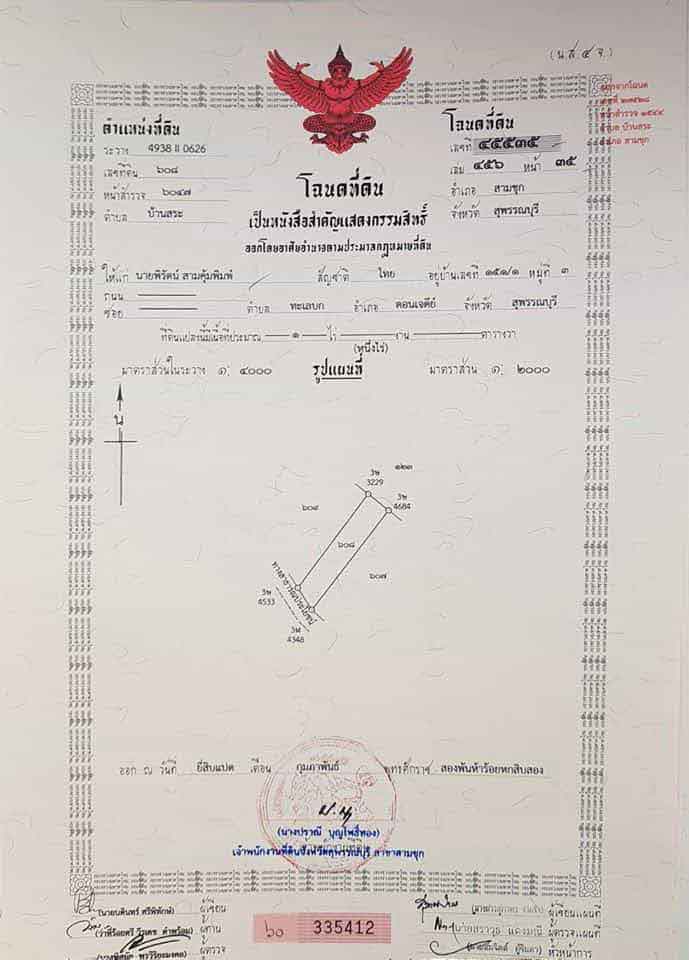 (น.ส. ๔ จ.)
ตำแหน่งที่ดิน
ระวาง 4938 II 0626
เลขที่ดิน ๖๐๘
หน้าสำรวจ ๖๐๔๗
ตำบล บ้านสระ
โฉนดที่ดิน
เลขที่ ๔๕๕๓๕
เล่ม ๔๕๖ หน้า ๓๕
อำเภอ สามชุก
จังหวัด สุพรรณบุรี
ตำบล บ้านสระ
อำเภอ สามชุก
โฉนดที่ดิน
เป็นหนังสือสำคัญแสดงกรรมสิทธิ์
ออกโดยอาศัยอำนาจตามประมวลกฎหมายที่ดิน
ให้แก่ นายพิรัตน์ สามคุ้มพิมพ์ สัญชาติ ไทย อยู่บ้านเลขที่ ๑๕๑/๑ หมู่ที่ ๓
ถนน
ซอย ตำบล ทะเลบก อำเภอ ดอนเจดีย์ จังหวัด สุพรรณบุรี
ที่ดินแปลงนี้มีเนื้อที่ประมาณ ๑ ไร่ งาน ตารางวา
(หนึ่งไร่)
มาตราส่วนในระวาง ๑: ๔๐๐๐ รูปแผนที่ มาตราส่วน ๑: ๒๐๐๐
น
3229
4684
๖๐๘
๖๐๗
ทางสาธารณประโยชน์
4533
4348
ออก ณ วันที่ ยี่สิบแปด เดือน กุมภาพันธ์ พุทธศักราช สองพันห้าร้อยหกสิบสอง
(นางปราณี บุญโพธิ์ทอง)
เจ้าพนักงานที่ดินจังหวัดสุพรรณบุรี สาขาสามชุก
ผู้เขียน
ผู้ทาน
ผู้ตรวจ
ผู้เขียนแผนที่
ผู้ตรวจแผนที่
หัวหน้าการ
๖๐ 335412